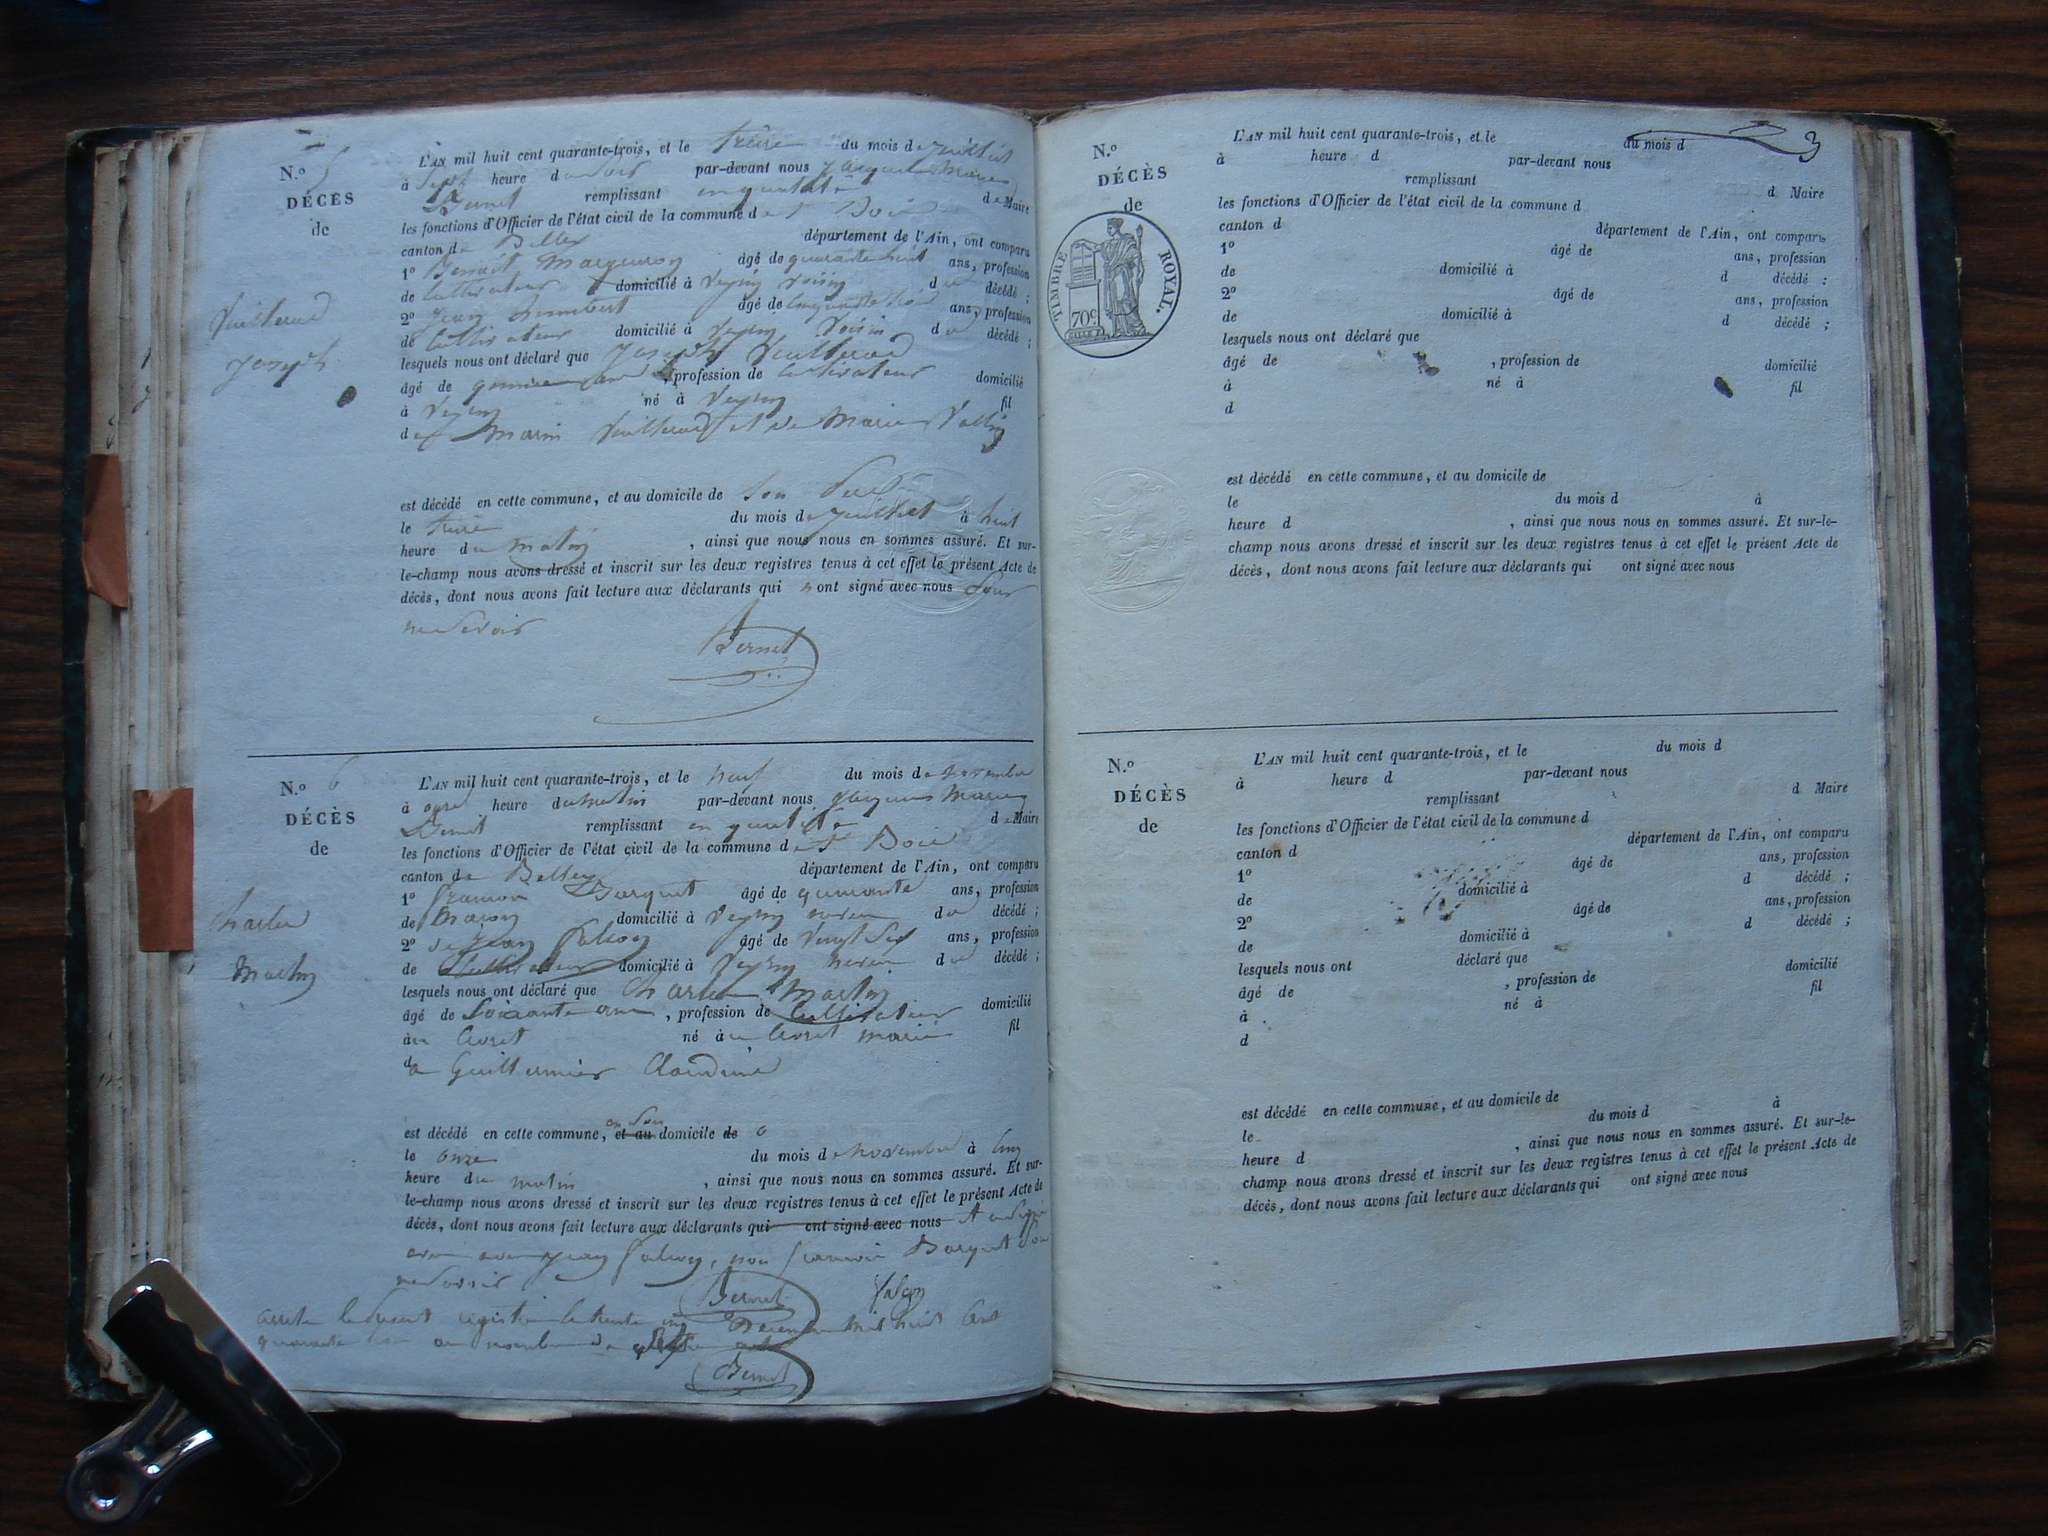 N.º 5
DÉCÈS
de
Vuillerod
Joseph
L'AN mil huit cent quarante-trois, et le treize du mois de juillet
à Sept heure du Soir par-devant nous Jacques Marie
Bernet remplissant en qualité de Maire
les fonctions d'Officier de l'état civil de la commune de St Bois
canton de Belley département de l'Ain, ont comparu
1º Benoit âgé de quarante huit ans, profession
de Cultivateur domicilié à Veyrin voisin du décédé ;
2º Jean Humbert âgé de Cinquante trois ans, profession
de Cultivateur domicilié à Veyrin Voisin du décédé ;
lesquels nous ont déclaré que Joseph Vuillerod
âgé de quinze ans, profession de Cultivateur domicilié
à Veyrin né à Veyrin fil
de Marin Vuillerod et de Marie Vallin
est décédé en cette commune, et au domicile de Son Père
le treize du mois de juillet à huit
heure du matin, ainsi que nous nous en sommes assuré. Et sur-
le-champ nous avons dressé et inscrit sur les deux registres tenus à cet effet le présent Acte de
décès, dont nous avons fait lecture aux déclarants qui n ont signé avec nous pour
ne Savoir
Bernet
N.º 6
DÉCÈS
de
Charlin
Martin
L'AN mil huit cent quarante-trois, et le neuf du mois de novembre
à onze heure du matin par-devant nous Jacques Marie
Bernet remplissant en qualité de Maire
les fonctions d'Officier de l'état civil de la commune de St Bois
canton de Belley département de l'Ain, ont comparu
1º François Borquet âgé de quarante ans, profession
de Maçon domicilié à Veyrin voisin du décédé ;
2º Jean Falcon âgé de Vingt Six ans, profession
de Cultivateur domicilié à Veyrin voisin du décédé ;
lesquels nous ont déclaré que Charlin Martin
âgé de Soixante ans, profession de Cultivateur domicilié
à né à marié fil
à Guillermier Claudine
est décédé en cette commune, en Son et au domicile de
le onze du mois de novembre à Cinq
heure du matin, ainsi que nous nous en sommes assuré. Et sur-
le-champ nous avons dressé et inscrit sur les deux registres tenus à cet effet le présent Acte de
décès, dont nous avons fait lecture aux déclarants qui ont signé avec nous
Jean Falcon, non François Borquet pour
ne Savoir
Bernet Falcon
arrêté le présent registre le trente un Décembre mil huit Cent
quarante trois au nombre de
Bernet
3
N.º
DÉCÈS
de
TIMBRE ROYAL.
70c
L'AN mil huit cent quarante-trois, et le du mois d
à heure d par-devant nous
remplissant d Maire
les fonctions d'Officier de l'état civil de la commune d
canton d département de l'Ain, ont comparu
1º âgé de ans, profession
de domicilié à d décédé ;
2º âgé de ans, profession
de domicilié à d décédé ;
lesquels nous ont déclaré que
âgé de , profession de domicilié
à né à fil
d
est décédé en cette commune, et au domicile de
le du mois d à
heure d , ainsi que nous nous en sommes assuré. Et sur-le-
champ nous avons dressé et inscrit sur les deux registres tenus à cet effet le présent Acte de
décès, dont nous avons fait lecture aux déclarants qui ont signé avec nous
N.º
DÉCÈS
de
L'AN mil huit cent quarante-trois, et le du mois d
à heure d par-devant nous
remplissant d Maire
les fonctions d'Officier de l'état civil de la commune d
canton d département de l'Ain, ont comparu
1º âgé de ans, profession
de domicilié à d décédé ;
2º âgé de ans, profession
de domicilié à d décédé ;
lesquels nous ont déclaré que
âgé de , profession de domicilié
à né à fil
d
est décédé en cette commune, et au domicile de
le du mois d à
heure d , ainsi que nous nous en sommes assuré. Et sur-le-
champ nous avons dressé et inscrit sur les deux registres tenus à cet effet le présent Acte de
décès, dont nous avons fait lecture aux déclarants qui ont signé avec nous